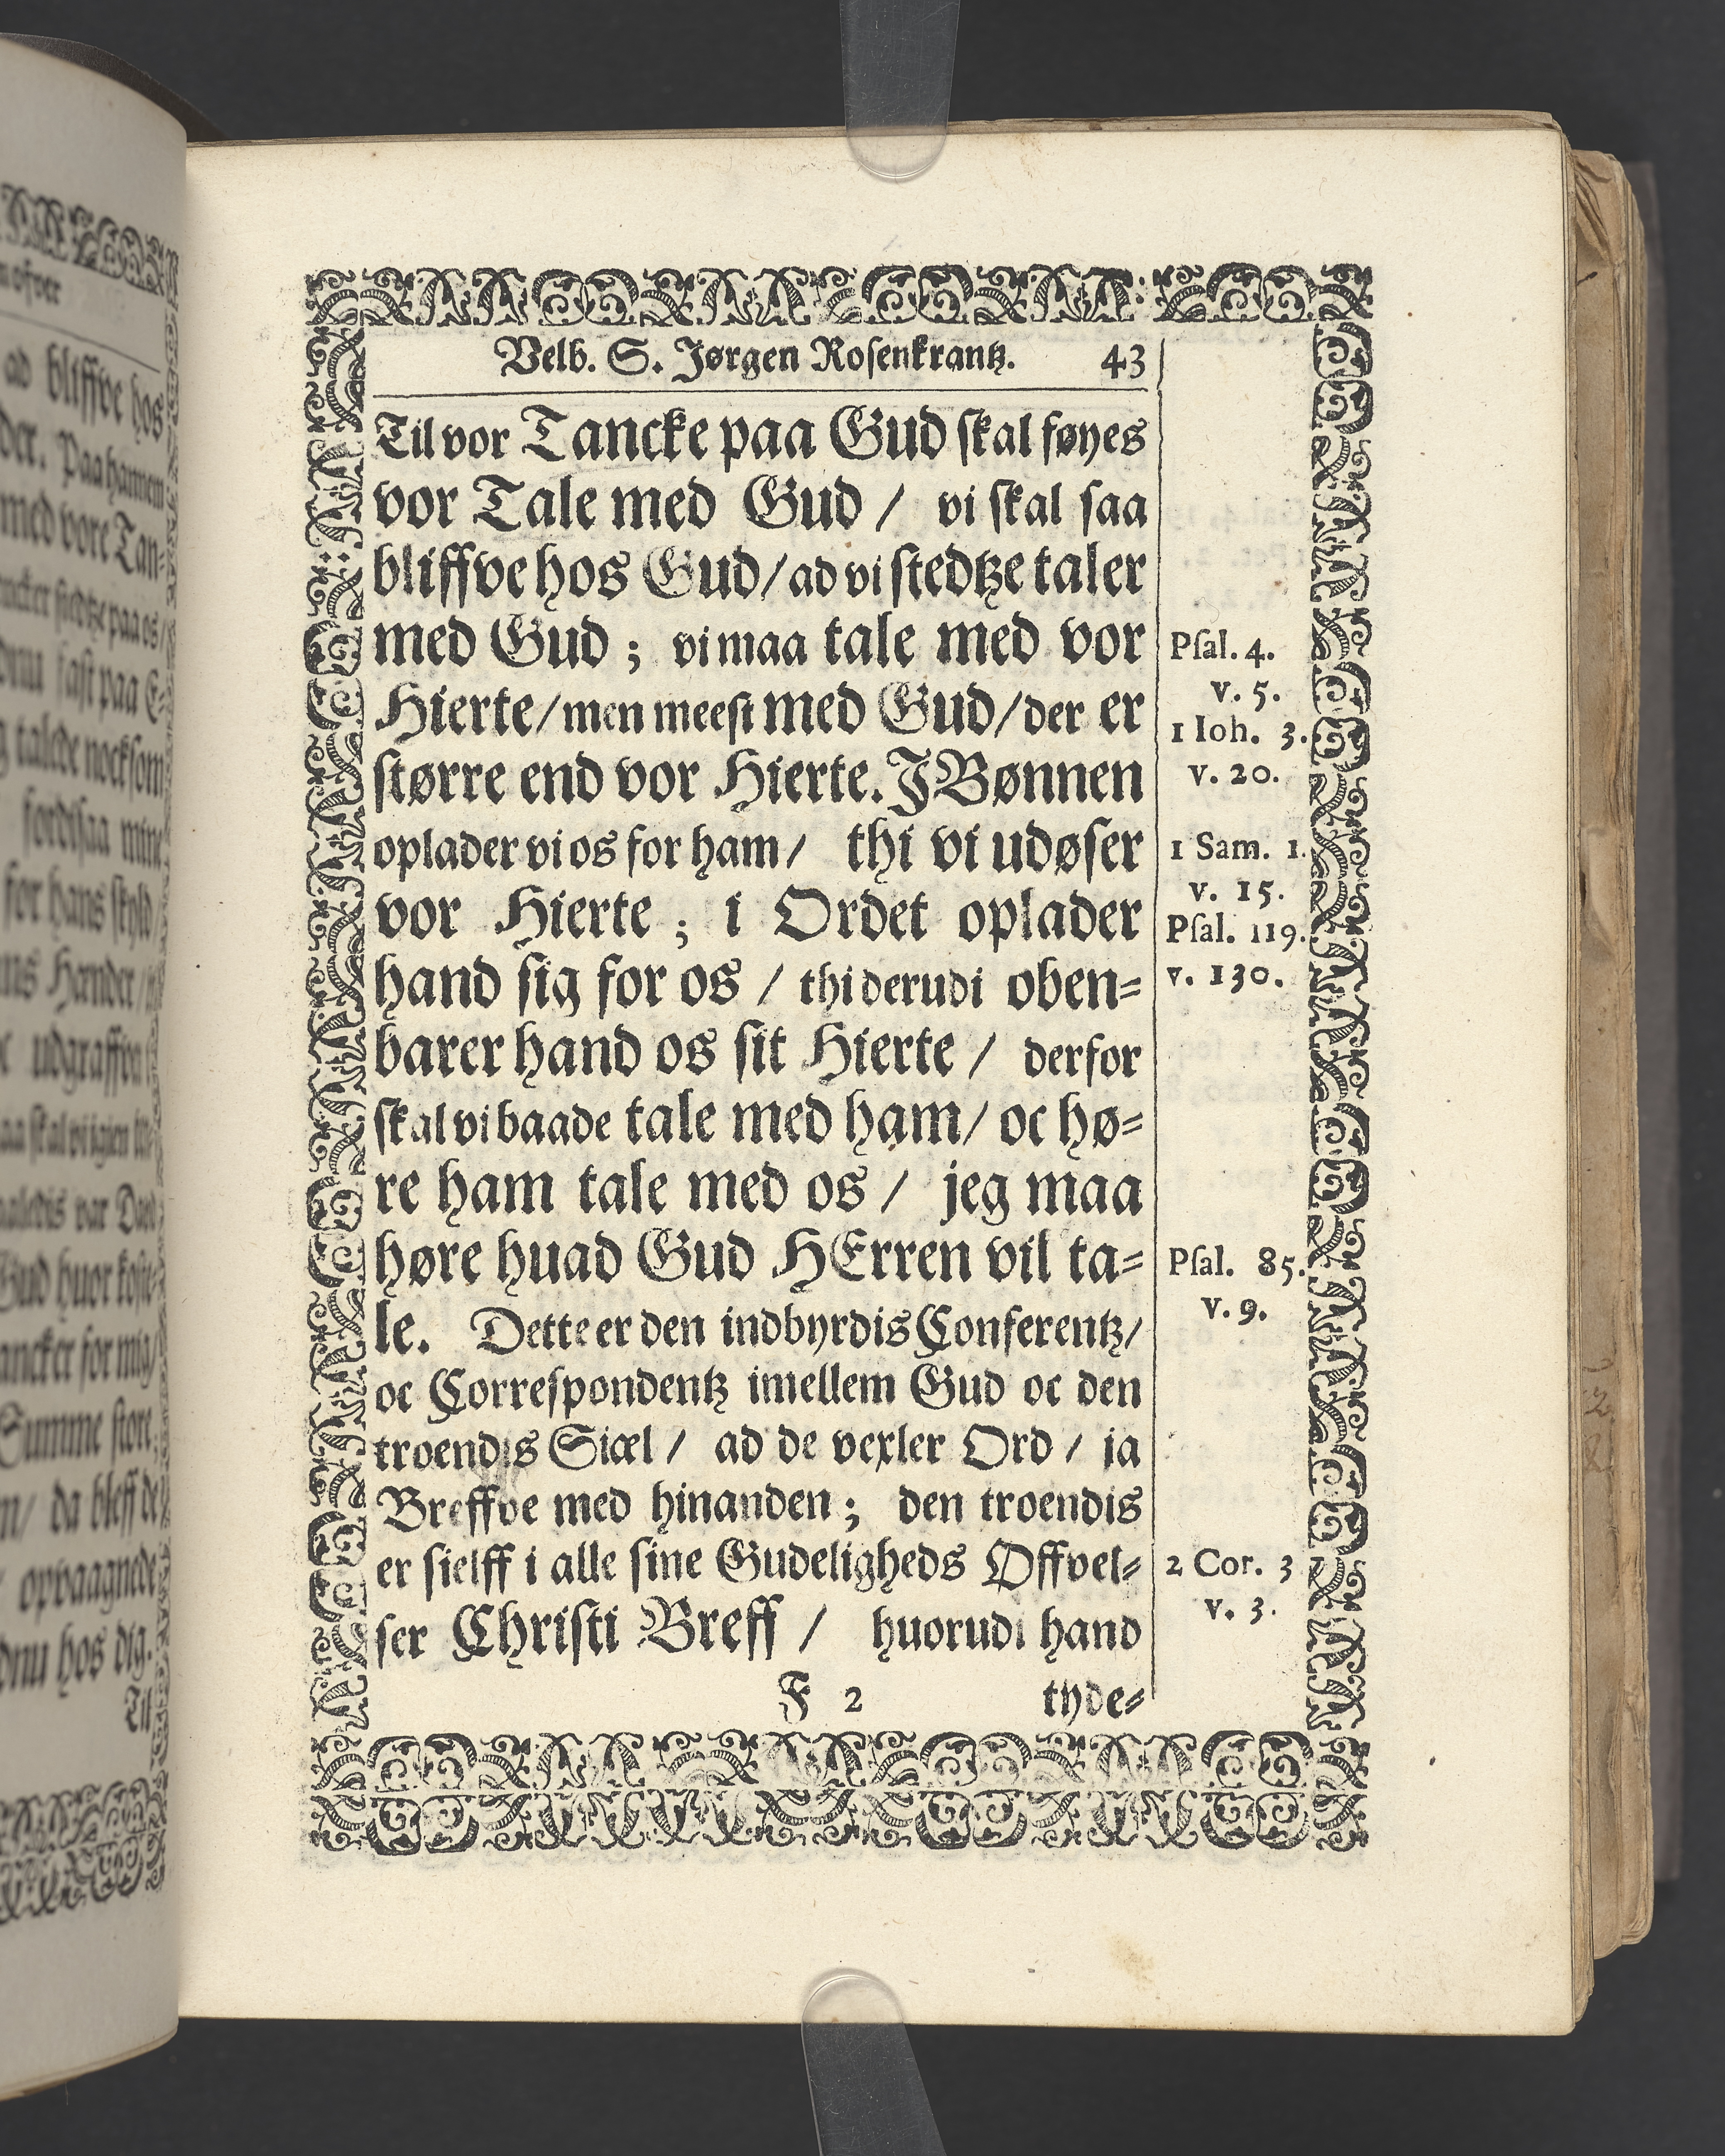 Velb. S. Jørgen Rosenkrantz. 43
Til vor Tancke paa Gud skal føyes
vor Tale med Gud / vi skal saa
bliffve hos Gud / ad vi stedtze taler
med Gud ; vi maa tale med vor
Hierte / men meest med Gud / der er
større end vor Hierte. J Bønnen
oplader vi os for ham / thi vi udøser
vor Hierte ; i Ordet oplader
hand sig for os / thi derudi oben=
barer hand os sit Hierte / derfor
skal vi baade tale med ham / oc hø=
re ham tale med os / jeg maa
høre huad Gud HErren vil ta=
le. Dette er den indbyrdis Conferentz /
oc Correspondentz imellem Gud oc den
troendis Siæl / ad de vexler Ord / ja
Breffve med hinanden ; den troendis
er sielff i alle sine Gudeligheds Øffvel=
ser Christi Breff / huorudi hand
F 2 tyde=
Psal. 4.
v. 5.
1 Ioh. 3.
v. 20.
1 Sam. 1.
v. 15.
Psal. 119.
v. 130.
Psal. 85.
v. 9.
2 Cor. 3
v. 3.
ad bliffve hos
der. Paa hannem
med vore Tan=
talde nocksom
for hans skyld
udgraffven
Gud huor
for mig /
Summe store
da bleff de
opvaagnede
hos dig.
Til